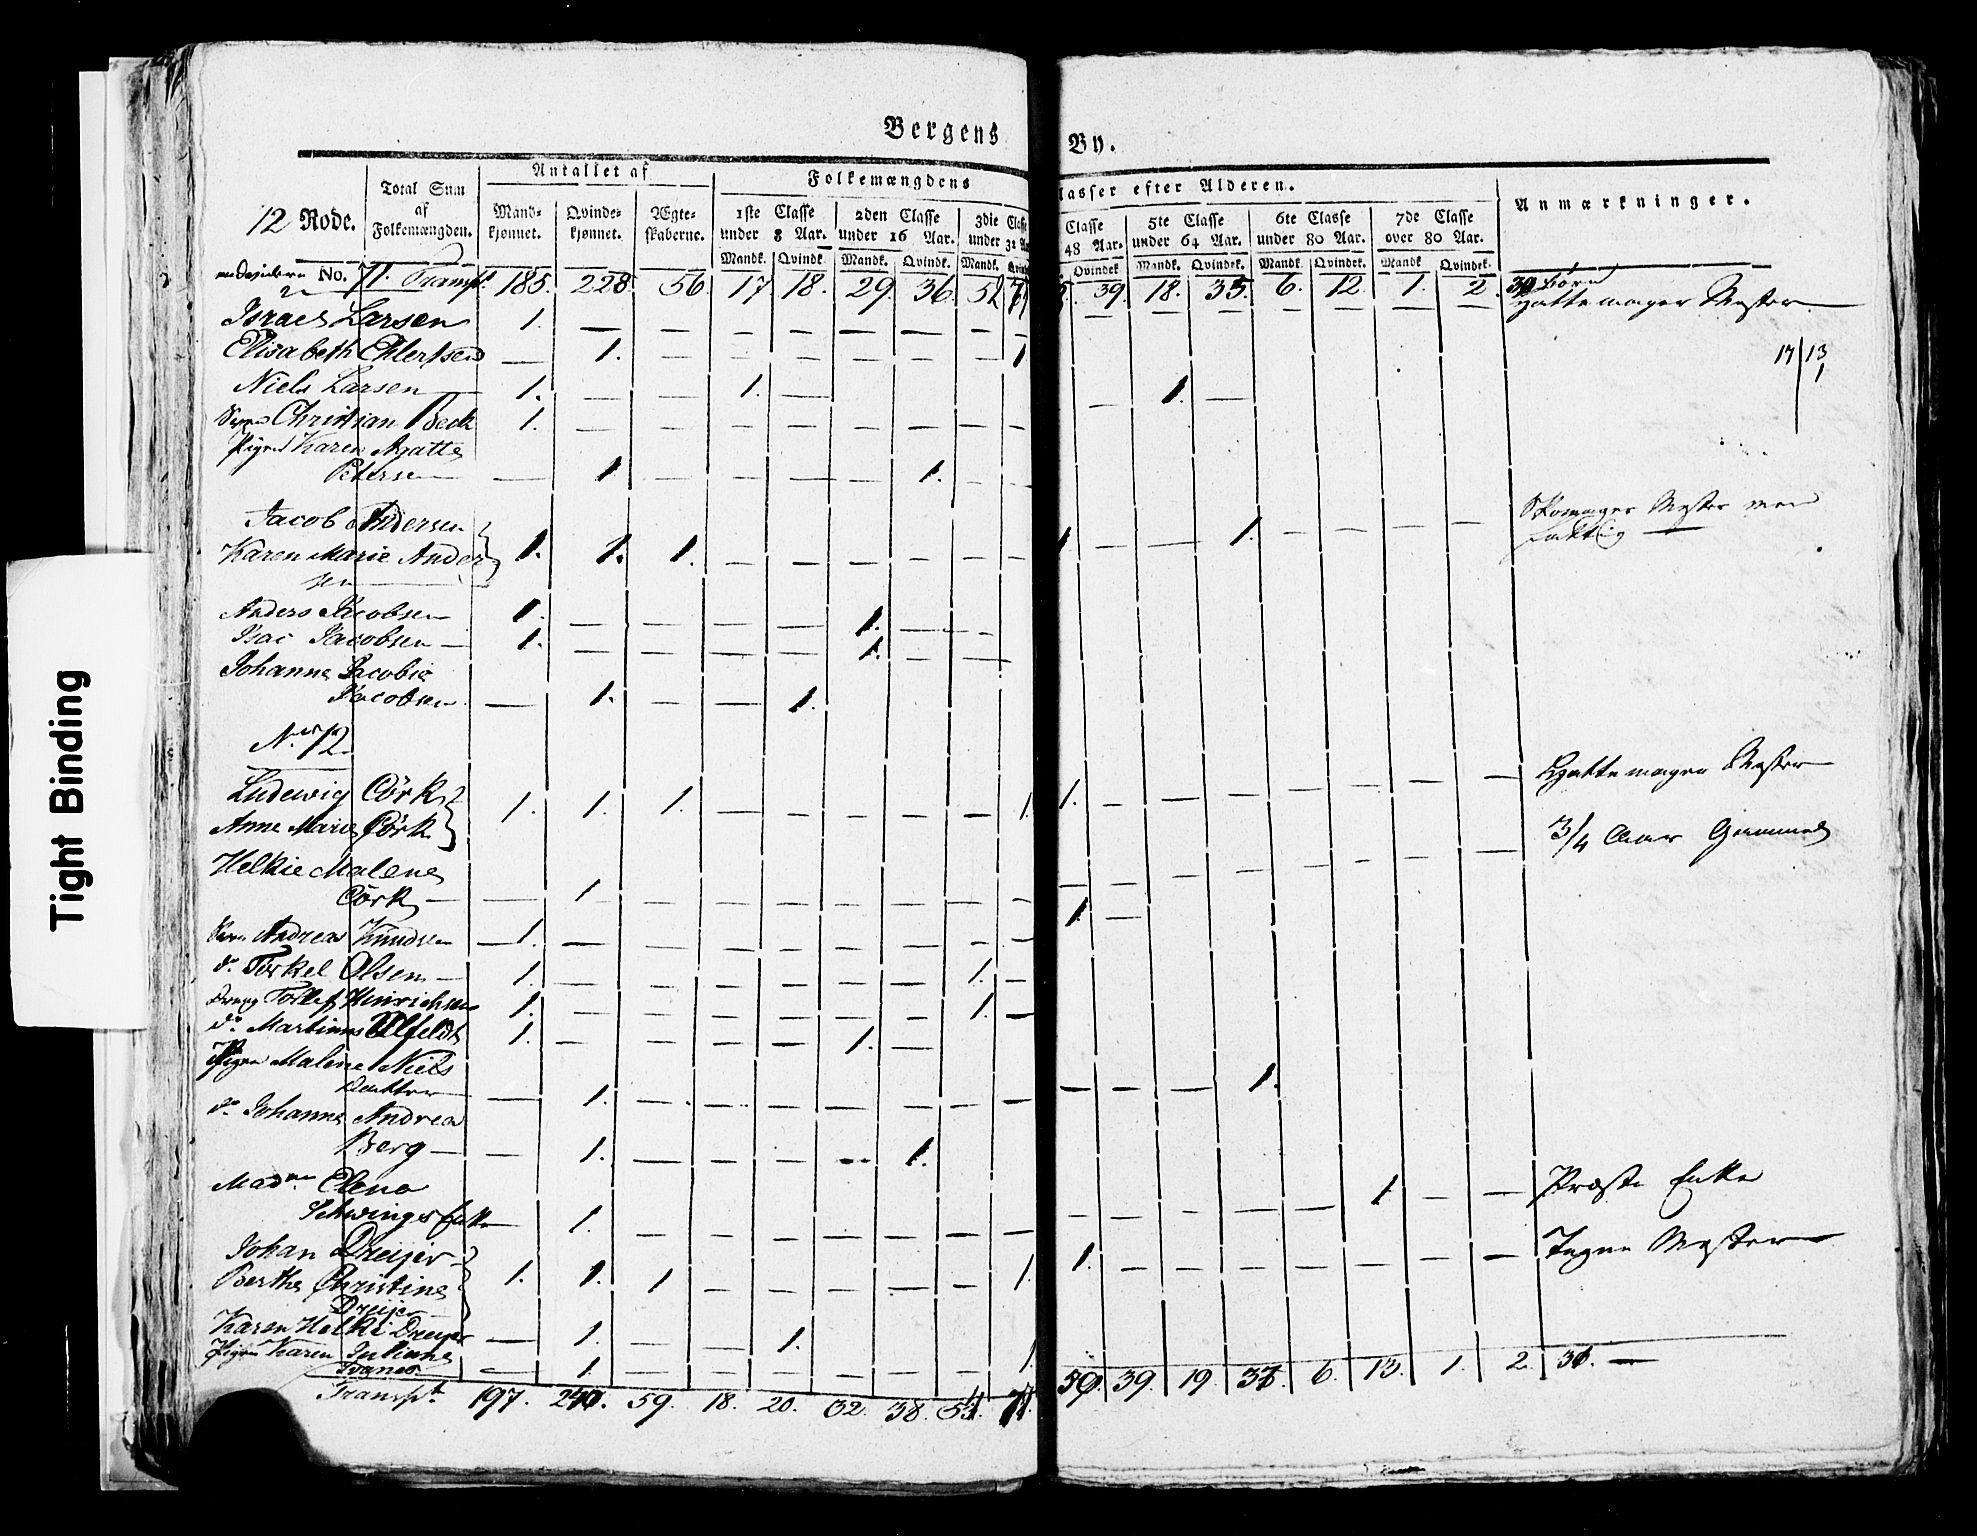 Bergens By.
12 Rode.
Total Sum af Folkemængden.
Antallet af
Mand-kjønnet. Qvinde-kjønnet. Ægte-skaberne.
Folkemængdens Classer efter Alderen.
1ste Classe under 8 Aar. 2den Classe under 16 Aar. 3die Classe under 32 Aar. Classe 48 Aar. 5te Classe under 64 Aar. 6te Classe under 80 Aar. 7de Classe over 80 Aar.
Mandk. Qvindk. Mandk. Qvindk. Mandk. Qvindk. Mandk. Qvindek. Mandk. Qvindek. Mandk Qvindek.
Anmærkninger.
No. 71. Transpt. 185. 228. 56. 17. 18. 29. 36. 39. 18. 35. 6. 12. 1. 2. 30 Børn
Israel Larsen 1. — Hattemager Mester
Elisabeth Ehlertsen — 1. — 1
17 | 13
1
Niels Larsen 1. — 1. — 1. —
Svend Christian Beck 1. —
Pigen Karen Agatte
Petersen — 1 — 1. —
Jacob Andersen
Karen Marie Ander
sen 1. 1. 1. — 1 — 1. — Skomager Mester men
fattig —
Anders Jacobsen 1. — 1. —
Isac Jacobsen — 1. — 1. —
Johanne Jacobie
Jacobsen — 1. — 1.
No. 72
Ludewig Cörk
Anne Marie Cörk 1. 1. 1. — 1. 1. — Hattemager Mester
Helkie Malene
Cörk — 1. — 3/4 Aar Gammel
Svend Andreas Knudsen — 1. — 1. —
do. Torkel Olsen — 1. — 1. —
Dreng Tollef Hinrichsen 1. — 1. —
do. Martinus Ulfeldt 1. — 1. —
Pigen Malene Niels
Datter — 1. — 1.
do. Johanne Andrea
Berg — 1. — 1.
Madme Elena
Schwings Enke — 1. — 1. — Præste Enke
Johan Dreijer
Berthe Christine
Dreijer 1. 1. 1 — 1. 1. — Mester
Karen Helki Dreijer — 1. — 1.
Pigen Karen Juliane
— 1. — 1
Transpt. 197. 59. 18. 20. 32. 38. 39. 19. 6. 13. 1. 2. —
Tight Binding